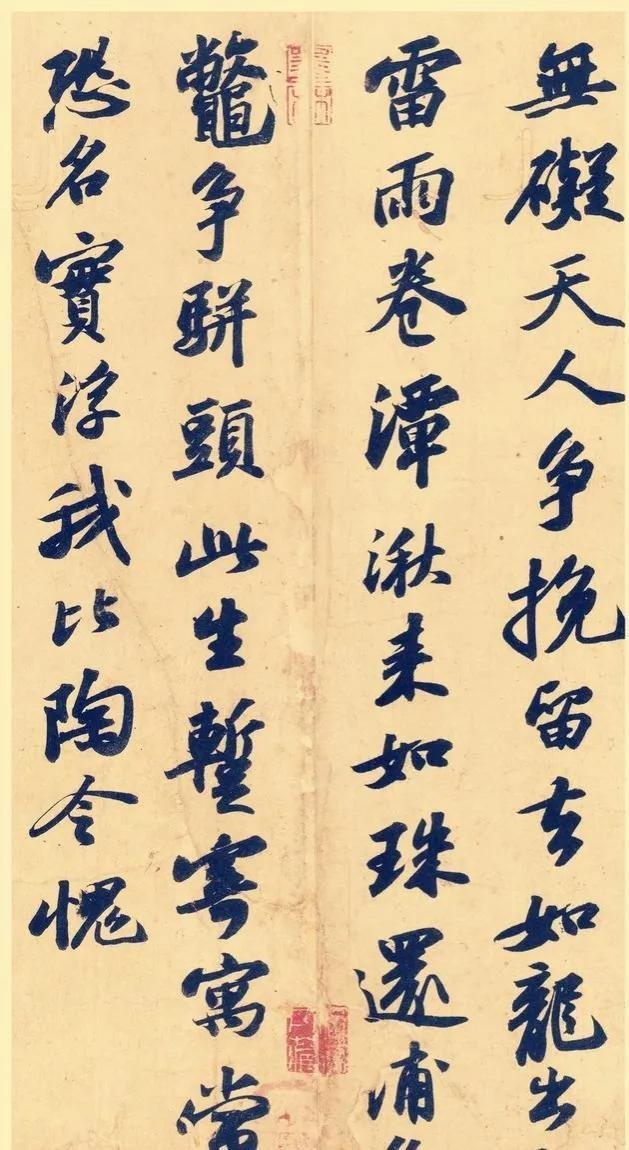 無礙天人争挽留去如龍出
雷雨卷潭湫来如珠還浦
鼈争駢頭此生暫寄寓常
恐名實浮我比陶令愧